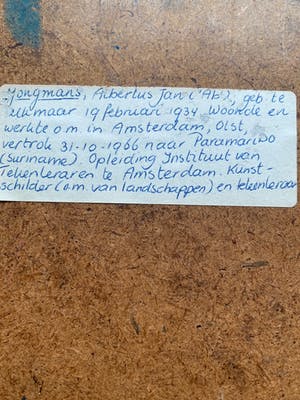 Jongmans, Albertus Jan ('Ab'), geb. te
Alkmaar 19 februari 1934. Woonde en
werkte o.m. in Amsterdam, Olst,
vertrok 31-10-1966 naar Paramaribo
(Suriname). Opleiding Instituut van
Tekenleraren te Amsterdam. Kunst-
schilder (o.m. van landschappen) en tekenleraar